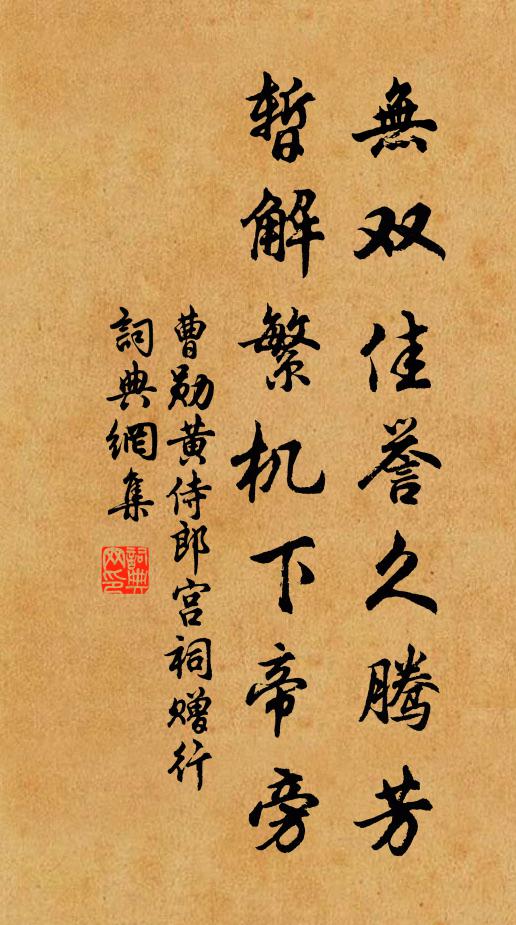 無双佳誉久腾芳
暫解繁机下帝旁
曹勋黄侍郎宫祠赠行
詞典網集
詞典網印